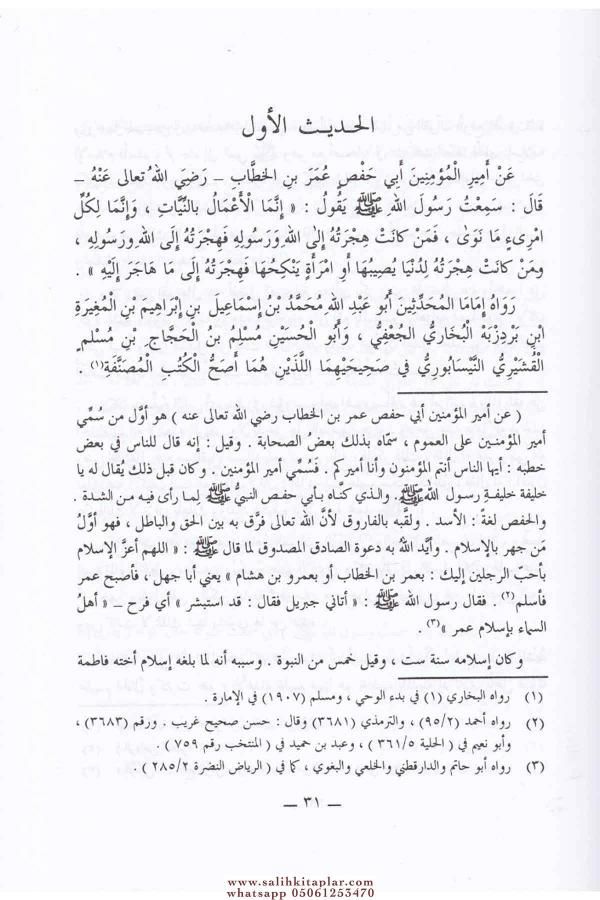 الحديث الأول
عَنْ أَمِيرِ الْمُؤْمِنِينَ أَبي حَفْصٍ عُمَرَ بنِ الخطابِ ـ رَضِيَ اللهُ تعالى عَنْهُ ـ
قَالَ : سَمِعْتُ رَسُولَ اللهِ ﷺ يَقُولُ : « إِنَّمَا الأَعْمَالُ بالنِّيَّاتِ ، وَإِنَّمَا لِكُلِّ
امْرِىءٍ مَا نَوَىٰ ، فَمَنْ كانَتْ هِجْرَتُهُ إِلىٰ اللهِ وَرَسُولِهِ فَهِجْرَتُهُ إِلَى اللهِ ورَسُولِهِ ،
ومَنْ كانَتْ هِجْرَتُهُ لِدُنْيَا يُصِيبُهَا أَوِ امْرَأَةٍ يَنْكِحُهَا فَهِجْرَتُهُ إِلَى مَا هَاجَرَ إِلَيْهِ » .
رَوَاهُ إِمَامَا المُحَدِّثِينَ أَبُو عَبْدِ اللهِ مُحَمَّدُ بْنُ إِسْمَاعِيلَ بنِ إِبْرَاهِيمَ بْنِ المُغِيرَةِ
ابْنِ بَرْدِزْبَهْ الْبُخَارِيُّ الجُعْفِيُّ ، وَأَبُو الْحُسَيْنِ مُسْلِمُ بنُ الْحَجَّاجِ بْنِ مُسْلمٍ
الْقُشَيْرِيُّ النَّيْسَابُورِيُّ في صَحِيحَيْهِمَا اللَّذَيْنِ هُمَا أَصَحُّ الْكُتُبِ الْمُصَنَّفَةِ(١) .
( عن أمير المؤمنين أبي حفص عمر بن الخطاب رضي الله تعالى عنه ) هو أوَّل من سُمِّي
أمير المؤمنين على العموم ، سمَّاه بذلك بعضُ الصحابة . وقيل : إنه قال للناس في بعض
خطبه : أيها الناس أنتم المؤمنون وأنا أميركم . فَسُمِّي أمير المؤمنين . وكان قبل ذلك يُقال له يا
خليفة خليفةِ رسول الله ﷺ . والذي كنَّاه بـأبي حفص النبيُّ ﷺ لِما رأى فيه من الشدة .
والحفص لغةً : الأسد . ولقَّبه بالفاروق لأنَّ الله تعالى فرَّق به بين الحق والباطل ، فهو أوَّلُ
مَن جهر بالإسلام . وأيَّد اللهُ به دعوة الصادق المصدوق لما قال ﷺ : « اللهم أعزَّ الإسلام
بأحبّ الرجلين إليك : بعمر بن الخطاب أو بعمرو بن هشام » يعني أبا جهل ، فأصبح عمر
فأسلم(٢) . فقال رسول الله ﷺ : « أتاني جبريل فقال : قد استبشر » أي فرح ـ « أهلُ
السماء بإسلام عمر »(٣) .
وكان إسلامه سنة ست ، وقيل خمس من النبوة . وسببه أنه لما بلغه إسلام أخته فاطمة
(١) رواه البخاري (١) في بدء الوحي ، ومسلم (١٩٠٧) في الإمارة .
(٢) رواه أحمد (٩٥/٢) ، والترمذي (٣٦٨١) وقال : حسن صحيح غريب . ورقم (٣٦٨٣) ،
وأبو نعيم في ( الحلية ٣٦١/٥ ) ، وعبد بن حميد في ( المنتخب رقم ٧٥٩ ) .
(٣) رواه أبو حاتم والدارقطني والخلعي والبغوي ، كما في ( الرياض النضرة ٢٨٥/٢ ) .
ـ ٣١ ـ
www.salihkitaplar.com
whatsapp 05061253470